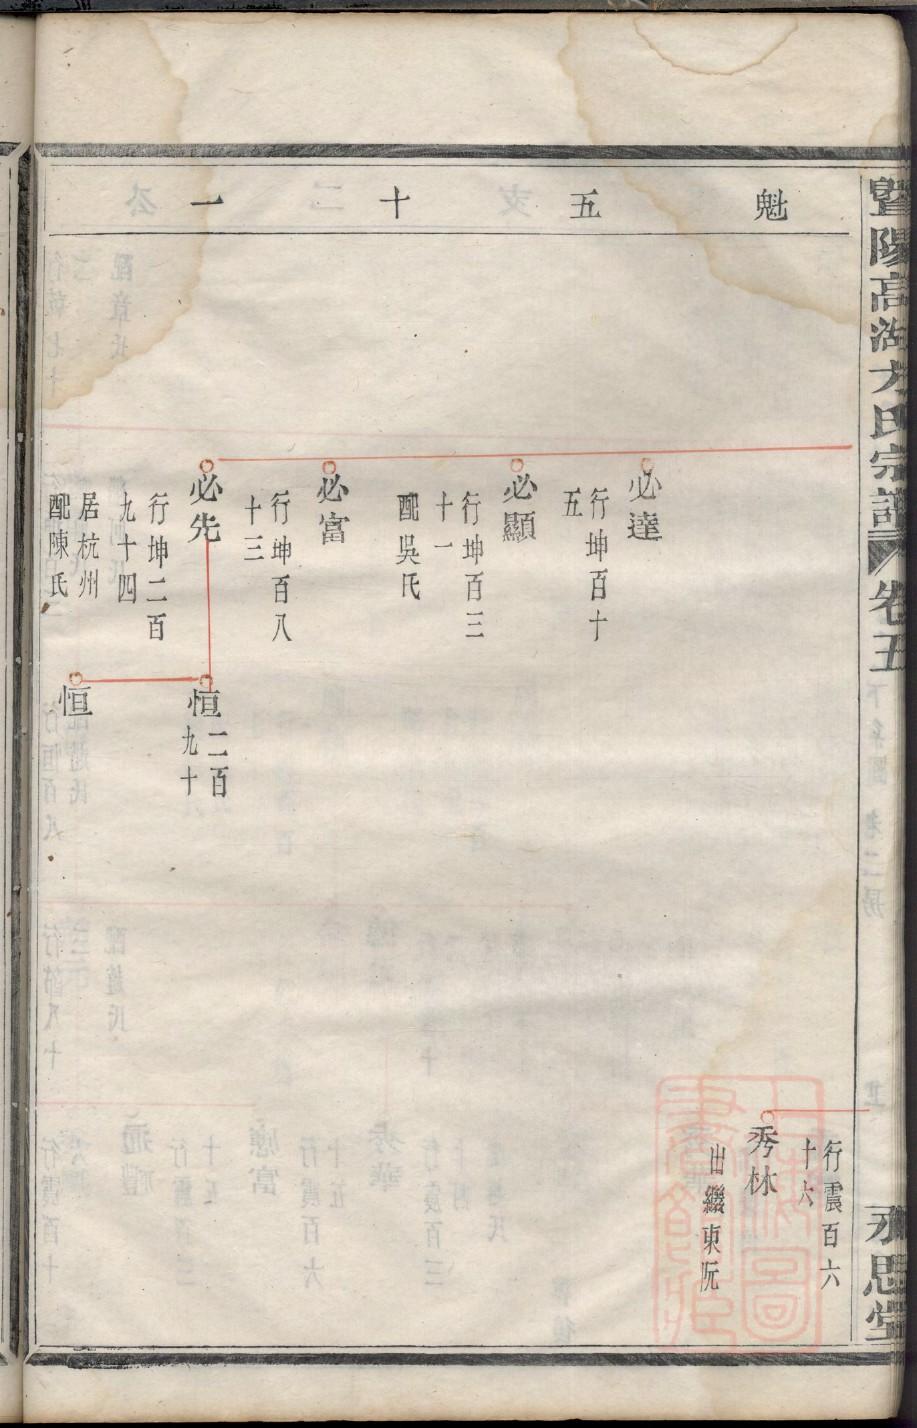 暨陽高湖方氏宗譜 卷五
永思堂
魁五十一
行震百六
十六
秀林
出繼東阮
必達
行坤百十
五
必顯
行坤百三
十一
配吳氏
必富
行坤百八
十三
必先
行坤二百
九十四
居杭州
配陳氏
恒
二百
九十
恒